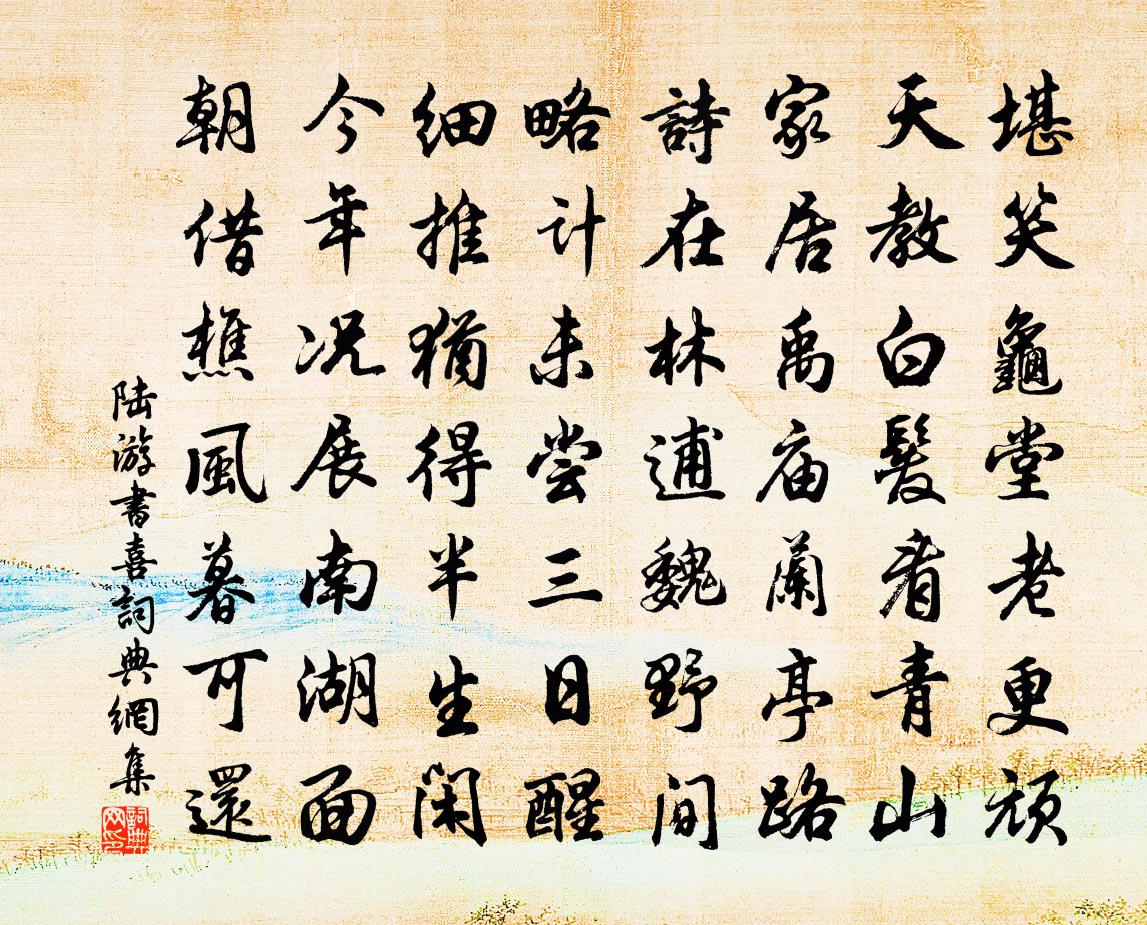 堪笑龜堂老更頑
天教白髮看青山
家居禹庙蘭亭路
詩在林逋魏野间
略计未尝三日醒
细推犹得半生闲
今年况展南湖面
朝借樵風暮可還
陆游書喜詞典網集
詞典网印